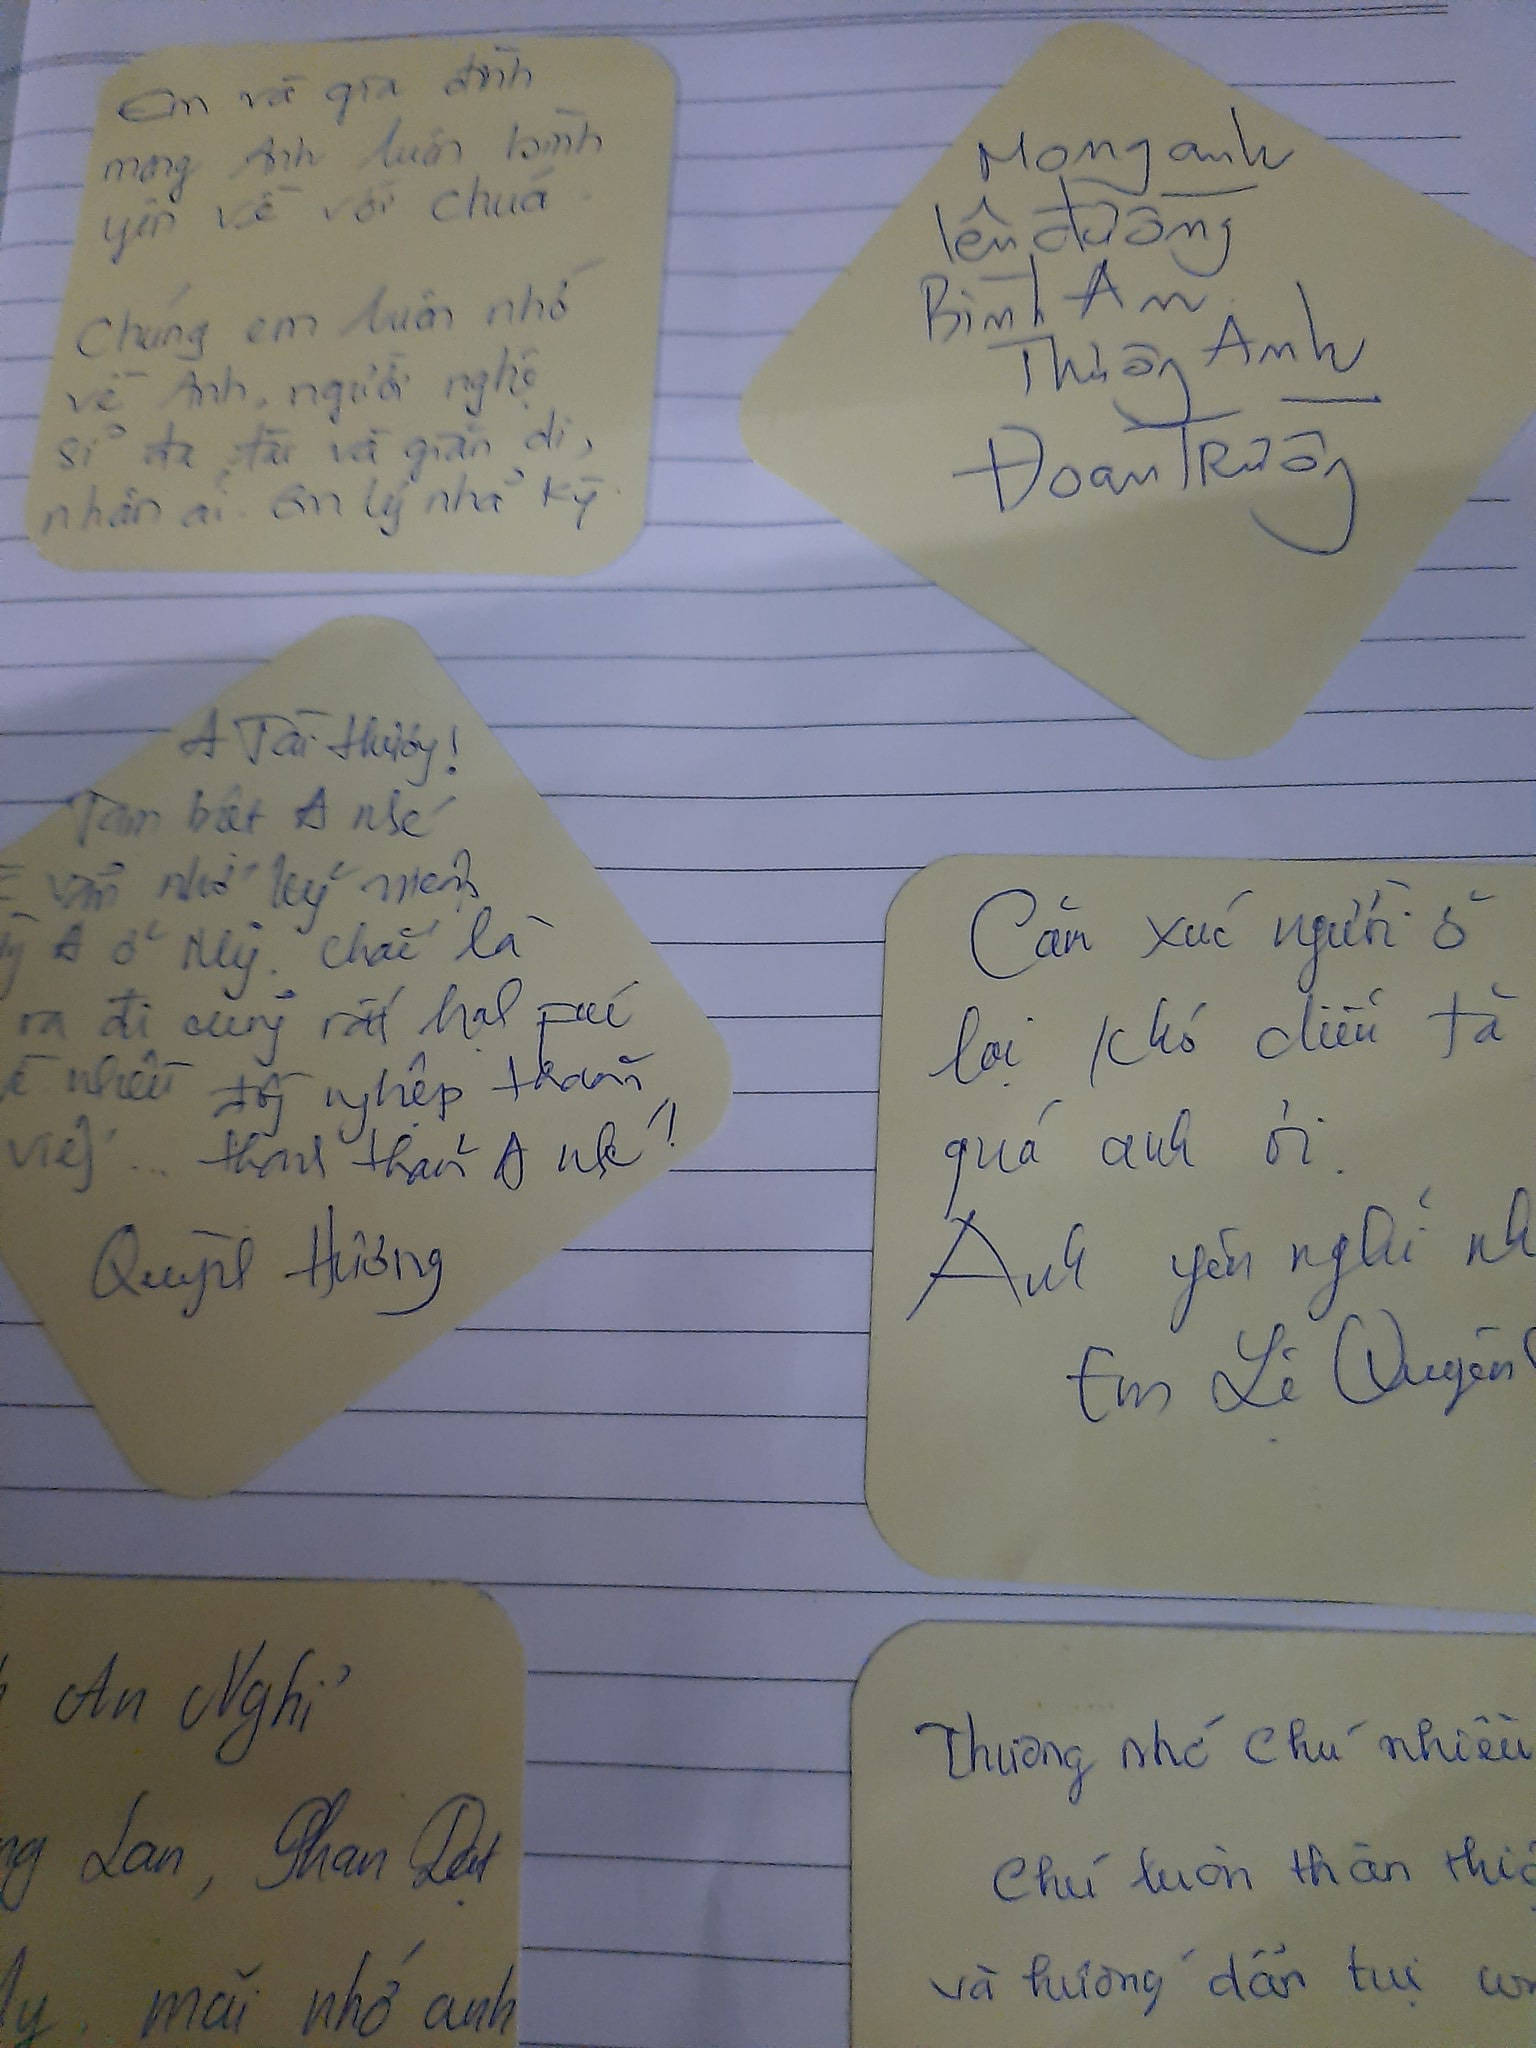 Em và gia đình
mong Anh luôn bình
yên về với Chúa.
Chúng em luôn nhớ
về Anh, người nghệ
sĩ đa tài và giản dị,
nhân ái. Em Lý Nhã Kỳ.
Mong anh
lên đường
Bình An.
Thương Anh
Đoan Trường
A Tài thương!
Tạm biệt A nhé
vẫn nhớ kỷ niệm
A ở Mỹ. Chắc là
ra đi cũng rất hạnh phúc
nhiều đồng nghiệp thăm
viếng... thanh thản A nhé!
Quỳnh Hương
Cảm xúc người ở
lại khó diễn tả
quá anh ơi.
Anh yên nghỉ nh
Em Lệ Quyên
An Nghỉ
ng Lan, Phan Đạt
Ny. mãi nhớ anh
Thương nhớ Chú nhiều
Chú luôn thân thiệ
và hướng dẫn tụi con